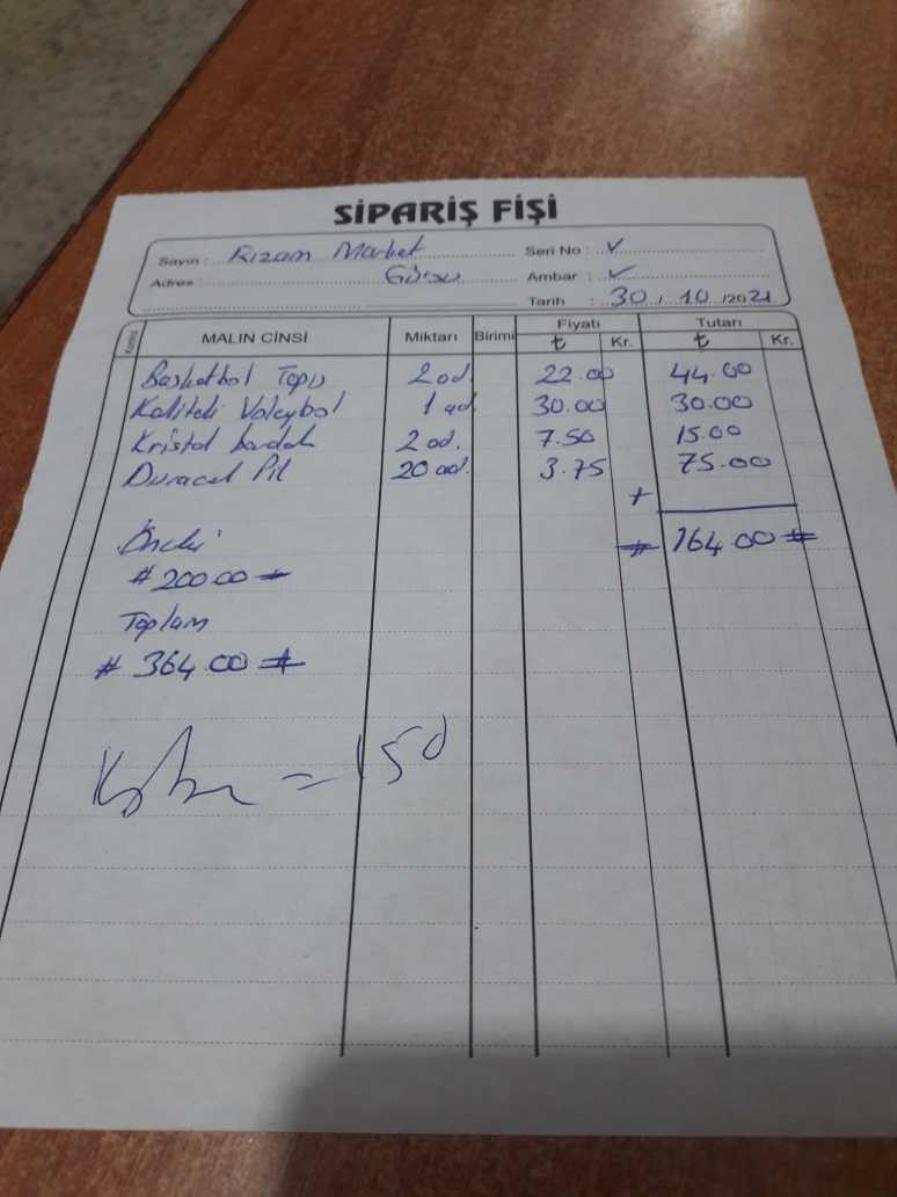 SİPARİŞ FİŞİ
Sayın : Rızam Market Seri No : ✓
Adres : Gürsu Ambar : ✓
Tarih : 30 / 10 /2021
MALIN CİNSİ Miktarı Birimi Fiyatı ₺ Kr. Tutarı ₺ Kr.
Basketbol Topu 2 ad. 22.00 44.00
Kaliteli Voleybol 1 ad. 30.00 30.00
Kristal bardak 2 ad. 7.50 15.00
Duracel Pil 20 ad. 3.75 75.00
+
Önceki # 164.00 #
# 200.00 #
Toplam
# 364.00 #
= 150